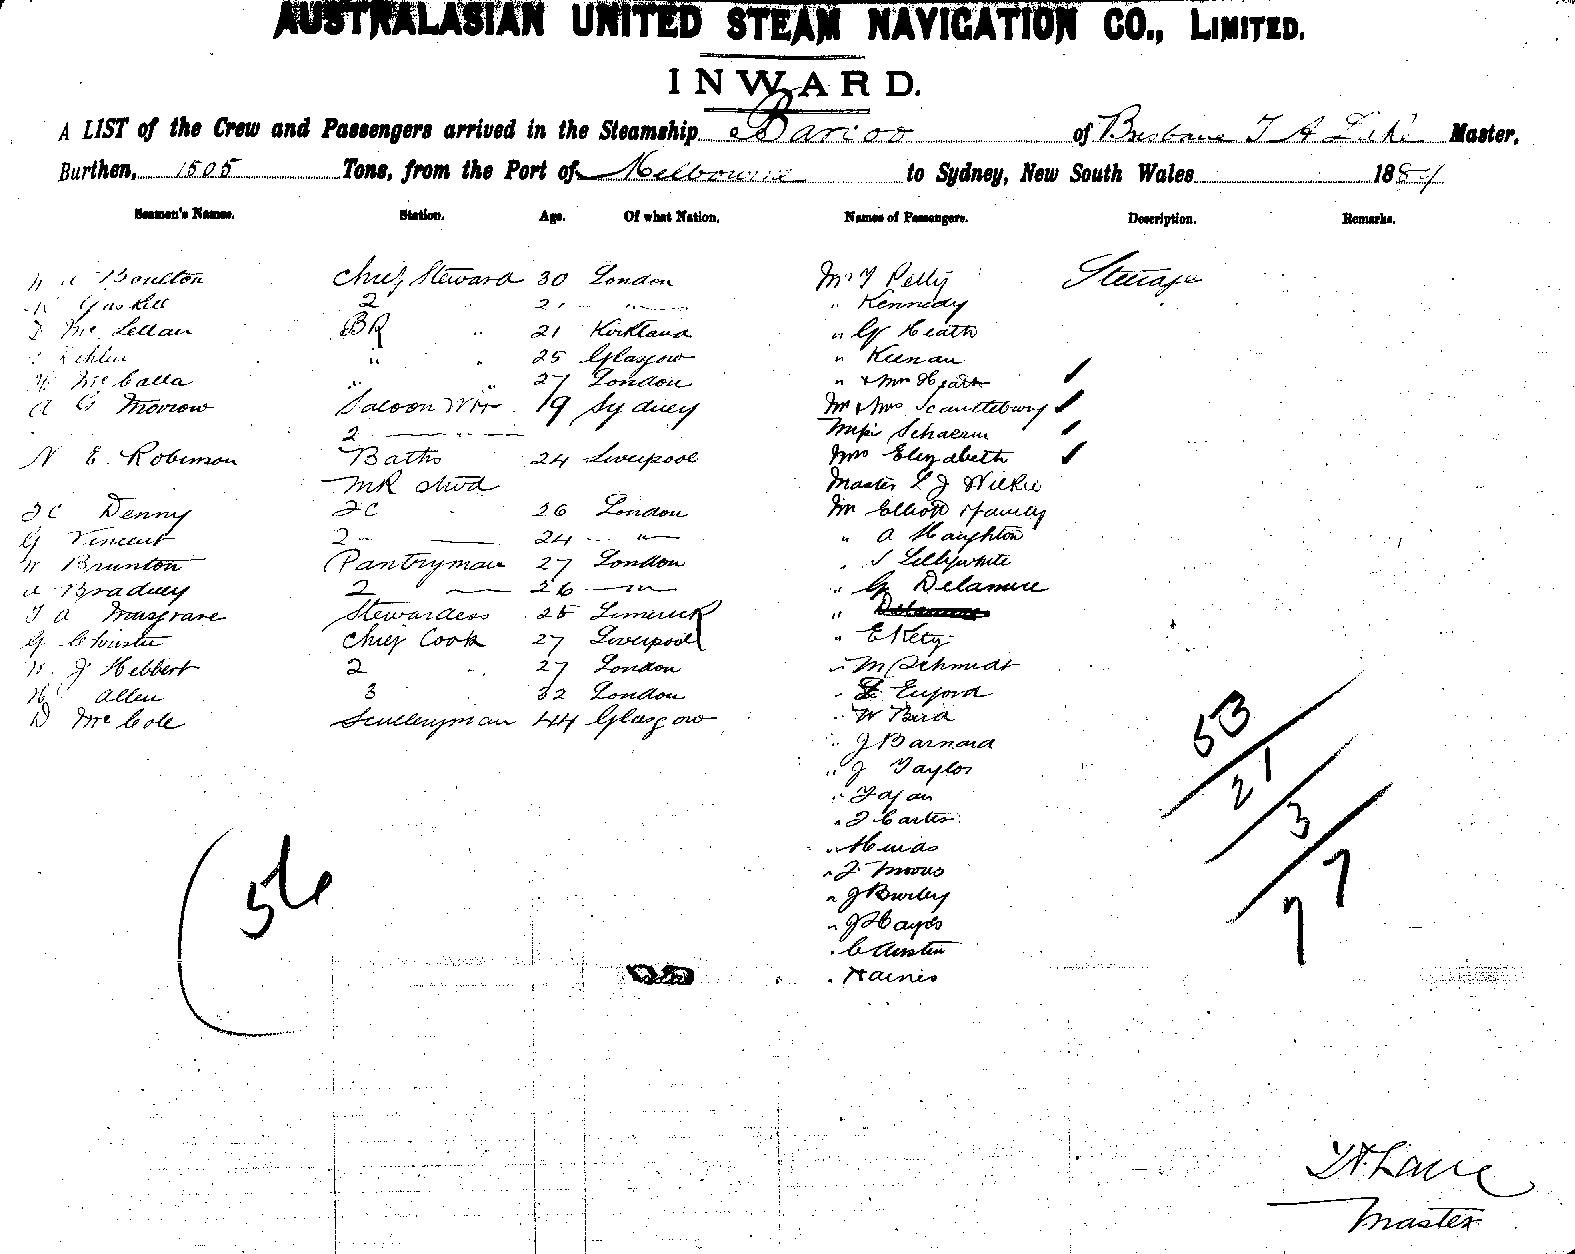 AUSTRALASIAN UNITED STEAM NAVIGATION CO., LIMITED.
INWARD.
A LIST of the Crew and Passengers arrived in the Steamship Barcoo of Brisbane T A Master,
Burthen, 1505 Tons, from the Port of Melbourne to Sydney, New South Wales 188
Seamen's Names. Station. Age. Of what Nation. Names of Passengers. Description. Remarks.
Boulton Chief Steward 30 London Mr T Pelly Steerage
Gaskell 2 21 — " — " Kennedy
D McLellan BR " 21 Kirkland " G Heath
" " 25 Glasgow " Keenan
McCalla " " 27 London " & Mrs Heath
A G Morrow Saloon Wtr 19 Sydney Mr & Mrs Scantlebury
2 — " — Miss Schaerm
N E. Robinson Baths 24 Liverpool Mrs Elizabeth
MR stwd Master L J Wilkie
J C Denny 2C " 26 London Mr Elliott & family
G Vincent 2 — 24 — " — " A Haughton
W Brunton Pantryman 27 London " S Lillywhite
A Bradley 2 — 26 — " — " G Delamere
T A Musgrave Stewardess 25 Limerick "
G Christie Chief Cook 27 Liverpool " E Kety
W. J Hebbert 2 " 27 London " M Schmidt
H Allen 3 32 London "
D McCole Sculleryman 44 Glasgow " W Bird
" J Barnard
" J Taylor
" Fagan
" J Carter
" Hinds
" J. Moors
" J Burley
" J Hayes
" C Austin
" Haines
53
21
3
77
56
Master